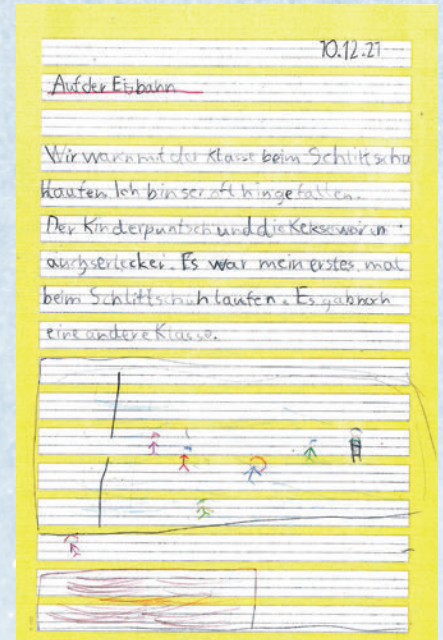 10.12.21
Auf der Eisbahn
Wir warn mit der Klasse beim Schlittschu
haufen. Ich bin ser oft hingefallen.
Der Kinderpuntsch und die Kekse warin
auch ser lecker. Es war mein erstes mal
beim Schlittschuh laufen. Es gab noch
eine andere Klasse.